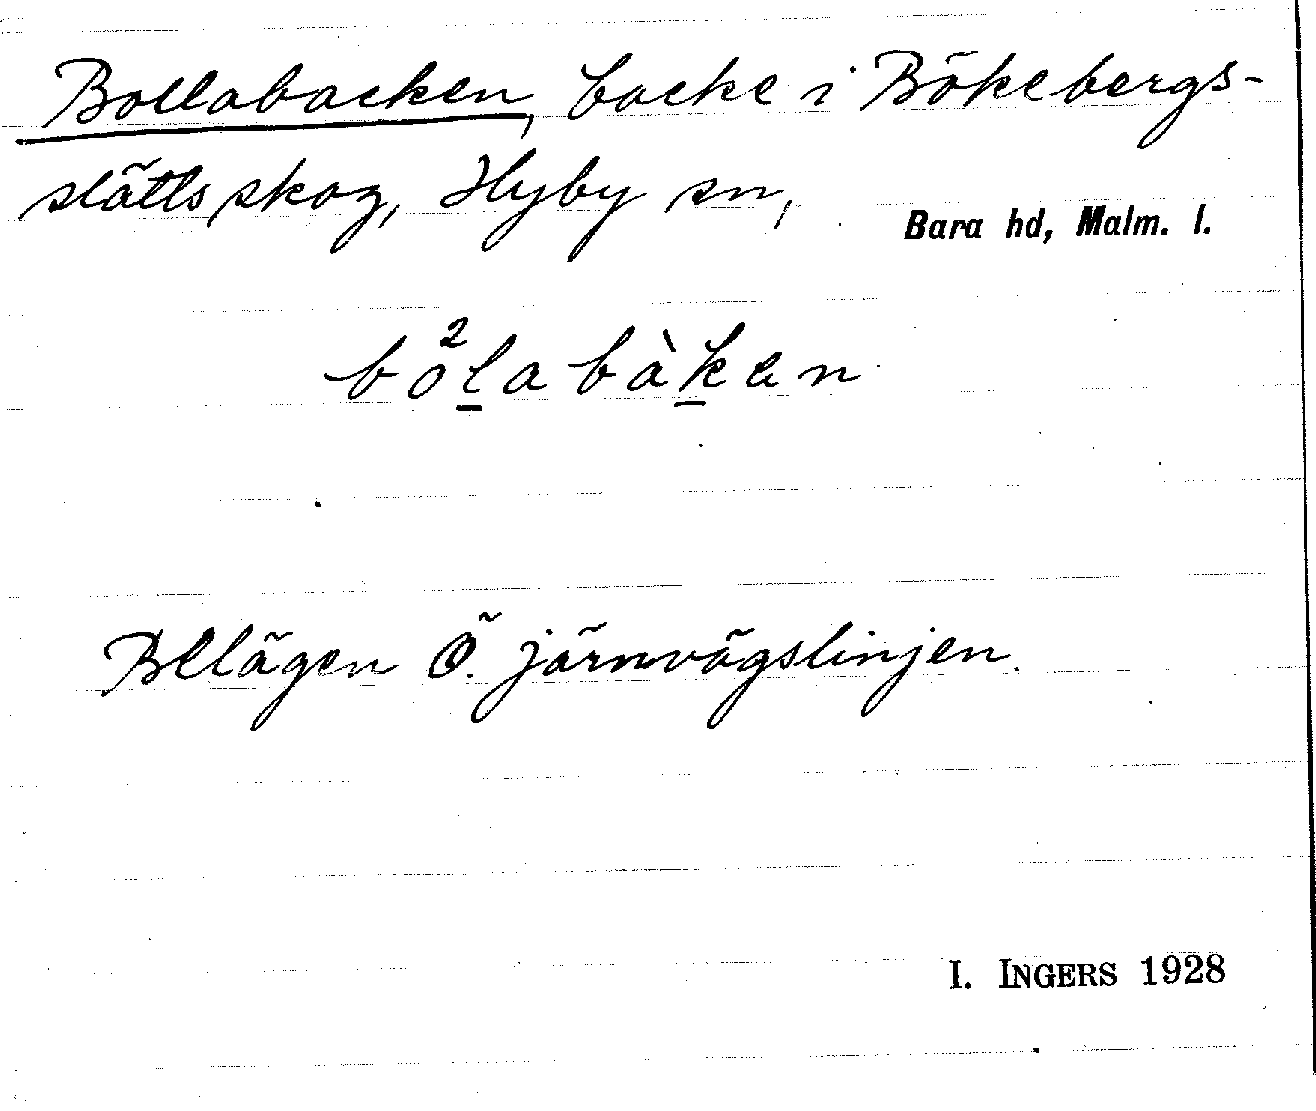 Bollabacken, backe i Bökebergs-
slätts skog, Hyby sn, Bara hd, Malm. l.
bo²l̲abàk̲an
Belägen Ö. järnvägslinjen.
I. INGERS 1928